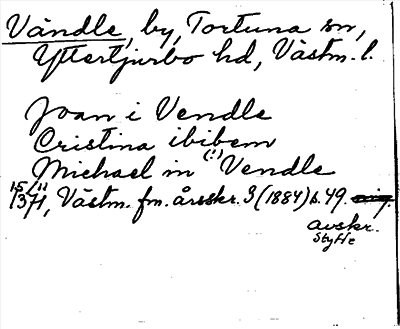 Vändle, by, Tortuna sn,
Yttertjurbo hd, Västm. l.
Joan i Vendle
Cristina ibibem
Michael in (!) Vendle
15/11 1371, Västm. fm. årsskr. 3 (1884) s. 49.
avskr.
Styffe